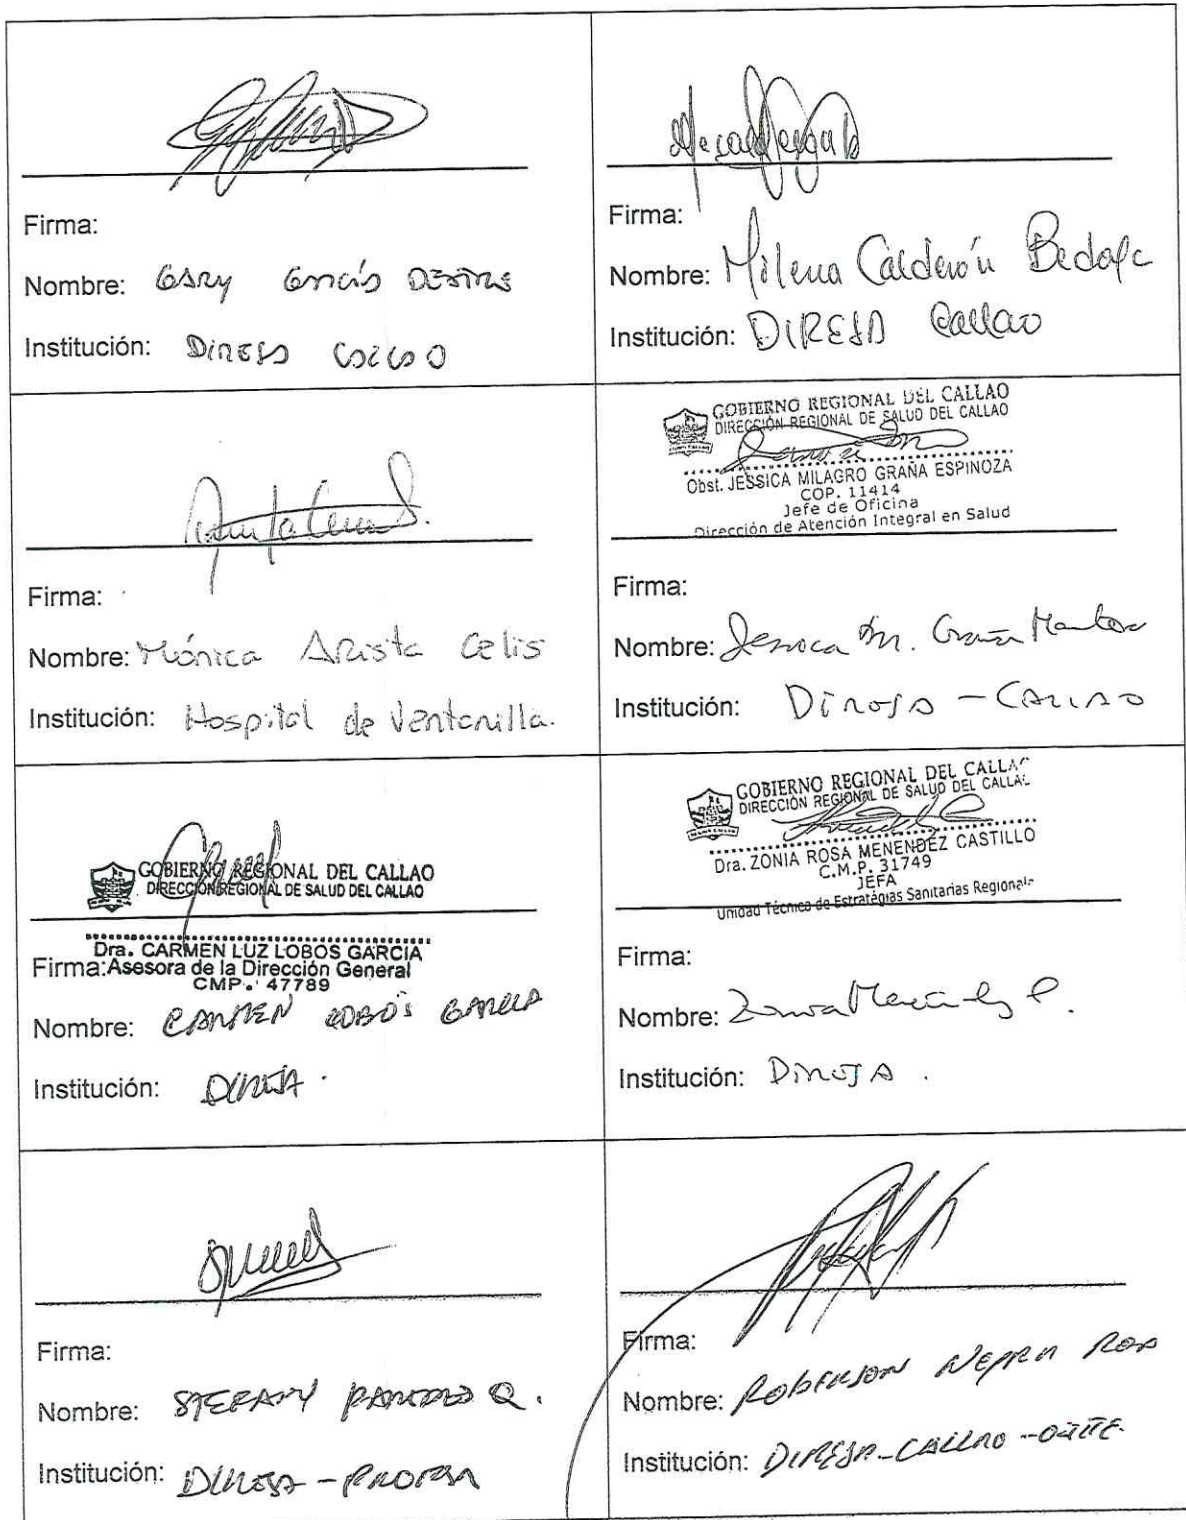 Firma:
Nombre: GARY
Institución: DIRESA CALLAO
Firma:
Nombre: Milena Calderón Bedoya
Institución: DIRESA Callao
Firma:
Nombre: Mónica Arista Celis
Institución: Hospital de Ventanilla.
GOBIERNO REGIONAL DEL CALLAO
DIRECCIÓN REGIONAL DE SALUD DEL CALLAO
Obst. JESSICA MILAGRO GRAÑA ESPINOZA
COP. 11414
Jefe de Oficina
Dirección de Atención Integral en Salud
Firma:
Nombre: Jessica M. Graña
Institución: DIRESA - CALLAO
GOBIERNO REGIONAL DEL CALLAO
DIRECCIÓN REGIONAL DE SALUD DEL CALLAO
Dra. CARMEN LUZ LOBOS GARCIA
Firma: Asesora de la Dirección General
CMP. 47789
Nombre: CARMEN LOBOS GARCIA
Institución: DIRESA.
GOBIERNO REGIONAL DEL CALLAO
DIRECCIÓN REGIONAL DE SALUD DEL CALLAO
Dra. ZONIA ROSA MENENDEZ CASTILLO
C.M.P. 31749
JEFA
Unidad Técnica de Estratégias Sanitarias Regionale
Firma:
Nombre: Zonia Menendez C.
Institución: DIRESA.
Firma:
Nombre: STEFANY Q.
Institución: DIRESA -
Firma:
Nombre: ROBERSON
Institución: DIRESA - CALLAO -